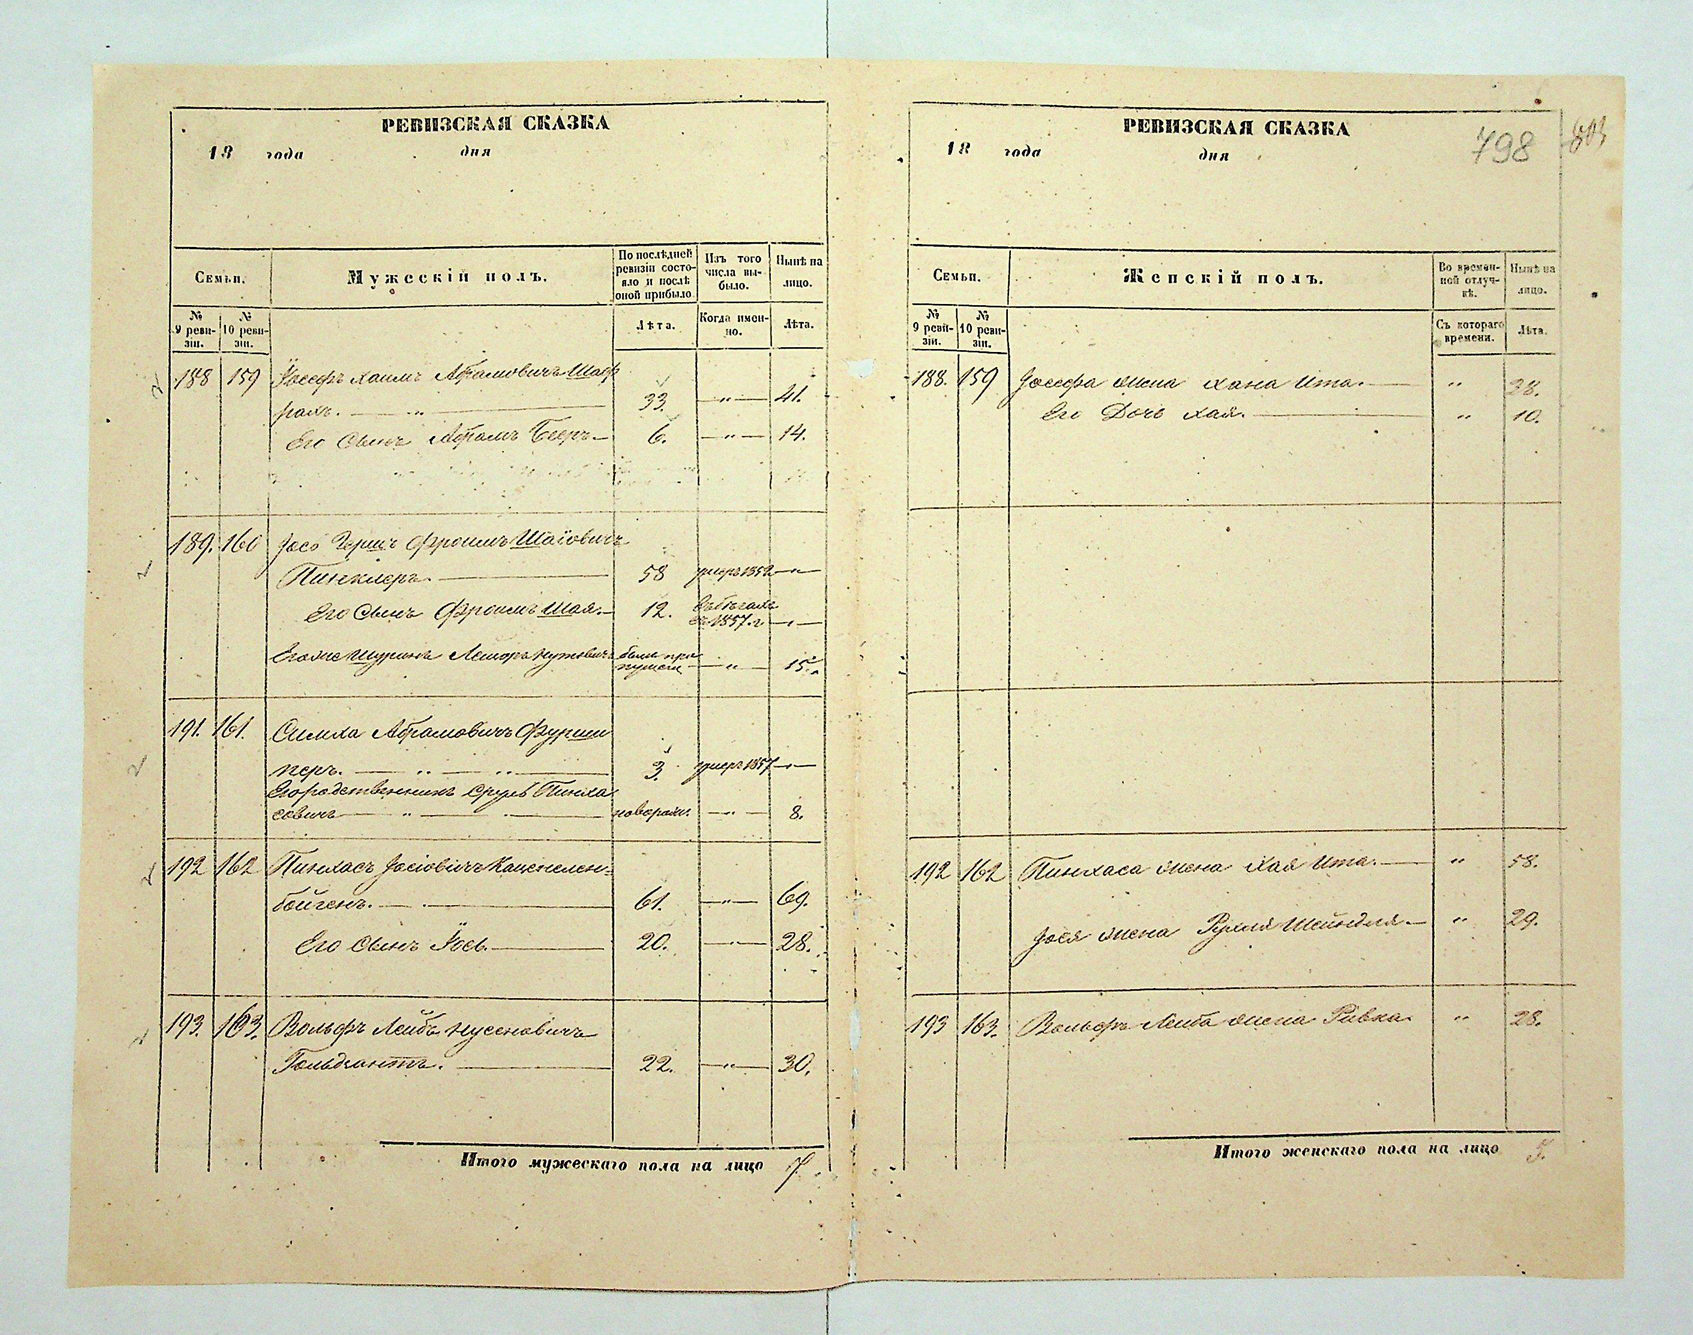 РЕВИЗСКАЯ СКАЗКА
18 года дня
Семьи.
Мужескій полъ.
По послѣдней ревизіи состо-
яло и послѣ
оной прибыло
Изъ того
числа вы-
было.
Нынѣ на
лицо.
№
9 реви-
зіи.
№
10 реви-
зіи.
Лѣта.
Когда имен-
но.
Лѣта.
188 159 Іосефъ Хаимъ Абрамовичъ
33. — " — 41.
Его Сынъ Абрамъ Беръ — 6. — " — 14.
189. 160 Іось Герш Фроимъ Шаіовичъ
Пинклеръ. — 58 умеръ 1852 — " —
Его Сынъ Фроимъ Шая. — 12. въ бѣгахъ
съ 1857. г. — " —
Его же Шуринъ — " — 15.
191. 161. Симха Абрамовичъ
перъ. — " — " — 3. умеръ 1857 — " —
Его родственникъ Сруль Пинха
совичъ — " — — 8.
192 162 Пинхасъ Іосіовичъ Каценелен-
бойгенъ. — 61. — " — 69.
Его Сынъ Іось. — 20. — " — 28.
193. 163. Вольфъ Лейбъ Нусеновичъ
22. — " — 30.
Итого мужескаго пола на лицо 7.
РЕВИЗСКАЯ СКАЗКА
18 года дня
798
803
Семьи.
Женскій полъ.
Во времен-
ной отлуч-
кѣ.
Нынѣ на
лицо.
№
9 реви-
зіи.
№
10 реви-
зіи.
Съ котораго
времени.
Лѣта.
188. 159 Іосефа жена Хана Ита. — " 28.
Его Дочь Хая. — " 10.
192 162 Пинхаса жена Хая Ита. — " 58.
Іося жена Рухля Шейндля — " 29.
193 163. Вольфъ Лейба жена Ривка. " 28.
Итого женскаго пола на лицо 5.